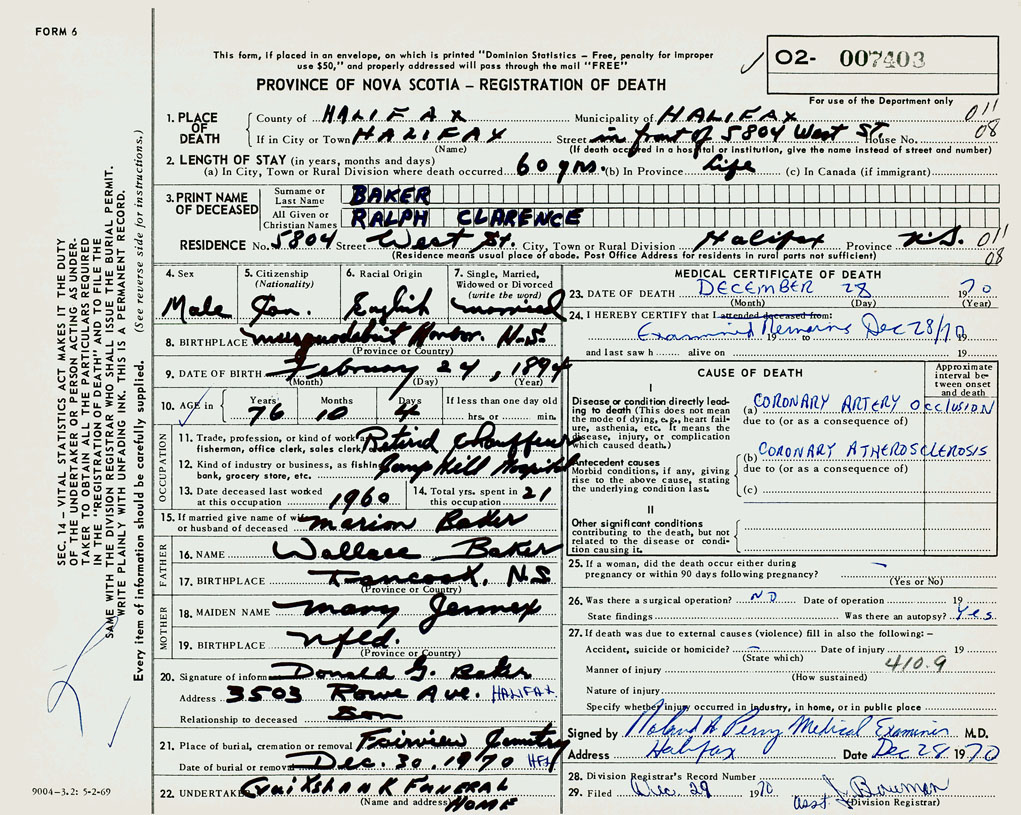 FORM 6
This form, if placed in an envelope, on which is printed "Dominion Statistics – Free, penalty for improper
use $50," and properly addressed will pass through the mail "FREE"
02- 007403
PROVINCE OF NOVA SCOTIA – REGISTRATION OF DEATH
For use of the Department only
1. PLACE OF DEATH County of HALIFAX Municipality of HALIFAX 011
If in City or Town HALIFAX Street in front of 5804 West St. House No. 08
(Name) (If death occurred in a hospital or institution, give the name instead of street and number)
2. LENGTH OF STAY (in years, months and days)
(a) In City, Town or Rural Division where death occurred 60 yrs. (b) In Province Life (c) In Canada (if immigrant)
3. PRINT NAME OF DECEASED Surname or Last Name BAKER
All Given or Christian Names RALPH CLARENCE
RESIDENCE No. 5804 Street West St. City, Town or Rural Division Halifax Province N.S. 011
(Residence means usual place of abode. Post Office Address for residents in rural parts not sufficient) 08
SEC. 14 – VITAL STATISTICS ACT MAKES IT THE DUTY
OF THE UNDERTAKER OR PERSON ACTING AS UNDER-
TAKER TO OBTAIN ALL THE PARTICULARS REQUIRED
IN THE "REGISTRATION OF DEATH" AND TO FILE THE
SAME WITH THE DIVISION REGISTRAR WHO SHALL ISSUE THE BURIAL PERMIT.
WRITE PLAINLY WITH UNFADING INK. THIS IS A PERMANENT RECORD.
Every item of information should be carefully supplied. (See reverse side for instructions.)
4. Sex Male
5. Citizenship (Nationality) Can.
6. Racial Origin English
7. Single, Married, Widowed or Divorced (write the word) married
8. BIRTHPLACE musquodobit Harbor. N.S.
(Province or Country)
9. DATE OF BIRTH February 24, 1894
(Month) (Day) (Year)
10. AGE in Years 76 Months 10 Days 4 If less than one day old
hrs. or min.
OCCUPATION
11. Trade, profession, or kind of work as Retired Chauffeur
fisherman, office clerk, sales clerk
12. Kind of industry or business, as fishing Camp Hill Hospital
bank, grocery store, etc.
13. Date deceased last worked at this occupation 1960
14. Total yrs. spent in this occupation 21
15. If married give name of wife
or husband of deceased Marion Baker
FATHER
16. NAME Wallace Baker
17. BIRTHPLACE Tancook. N.S
(Province or Country)
MOTHER
18. MAIDEN NAME Mary Jennex
19. BIRTHPLACE Nfld.
(Province or Country)
20. Signature of inform Donald G. Baker
Address 3503 Rowe Ave. HALIFAX
Relationship to deceased Son
21. Place of burial, cremation or removal Fairview
Date of burial or removal Dec. 30, 1970 HFX
22. UNDERTAKER Cruikshank FUNERAL HOME
(Name and address)
9004-3.2: 5-2-69
MEDICAL CERTIFICATE OF DEATH
23. DATE OF DEATH DECEMBER 28 1970
(Month) (Day) (Year)
24. I HEREBY CERTIFY that I attended deceased from:
Examined Remains Dec 28/70
19 to 19
and last saw h alive on 19
CAUSE OF DEATH
Approximate interval between onset and death
I
Disease or condition directly leading to death (This does not mean the mode of dying, e.g., heart failure, asthenia, etc. It means the disease, injury, or complication which caused death.)
(a) CORONARY ARTERY OCCLUSION
due to (or as a consequence of)
Antecedent causes
Morbid conditions, if any, giving rise to the above cause, stating the underlying condition last.
(b) CORONARY ATHEROSCLEROSIS
due to (or as a consequence of)
(c)
II
Other significant conditions contributing to the death, but not related to the disease or condition causing it.
25. If a woman, did the death occur either during
pregnancy or within 90 days following pregnancy? –
(Yes or No)
26. Was there a surgical operation? NO Date of operation 19
State findings Was there an autopsy? Yes
27. If death was due to external causes (violence) fill in also the following: –
Accident, suicide or homicide? – Date of injury 19
(State which)
Manner of injury 410.9
(How sustained)
Nature of injury
Specify whether injury occurred in industry, in home, or in public place
Signed by Roland A Perry Medical Examiner M.D.
Address Halifax Date Dec 28 1970
28. Division Registrar's Record Number
29. Filed Dec. 29 1970 asst. J. Bowman
(Division Registrar)